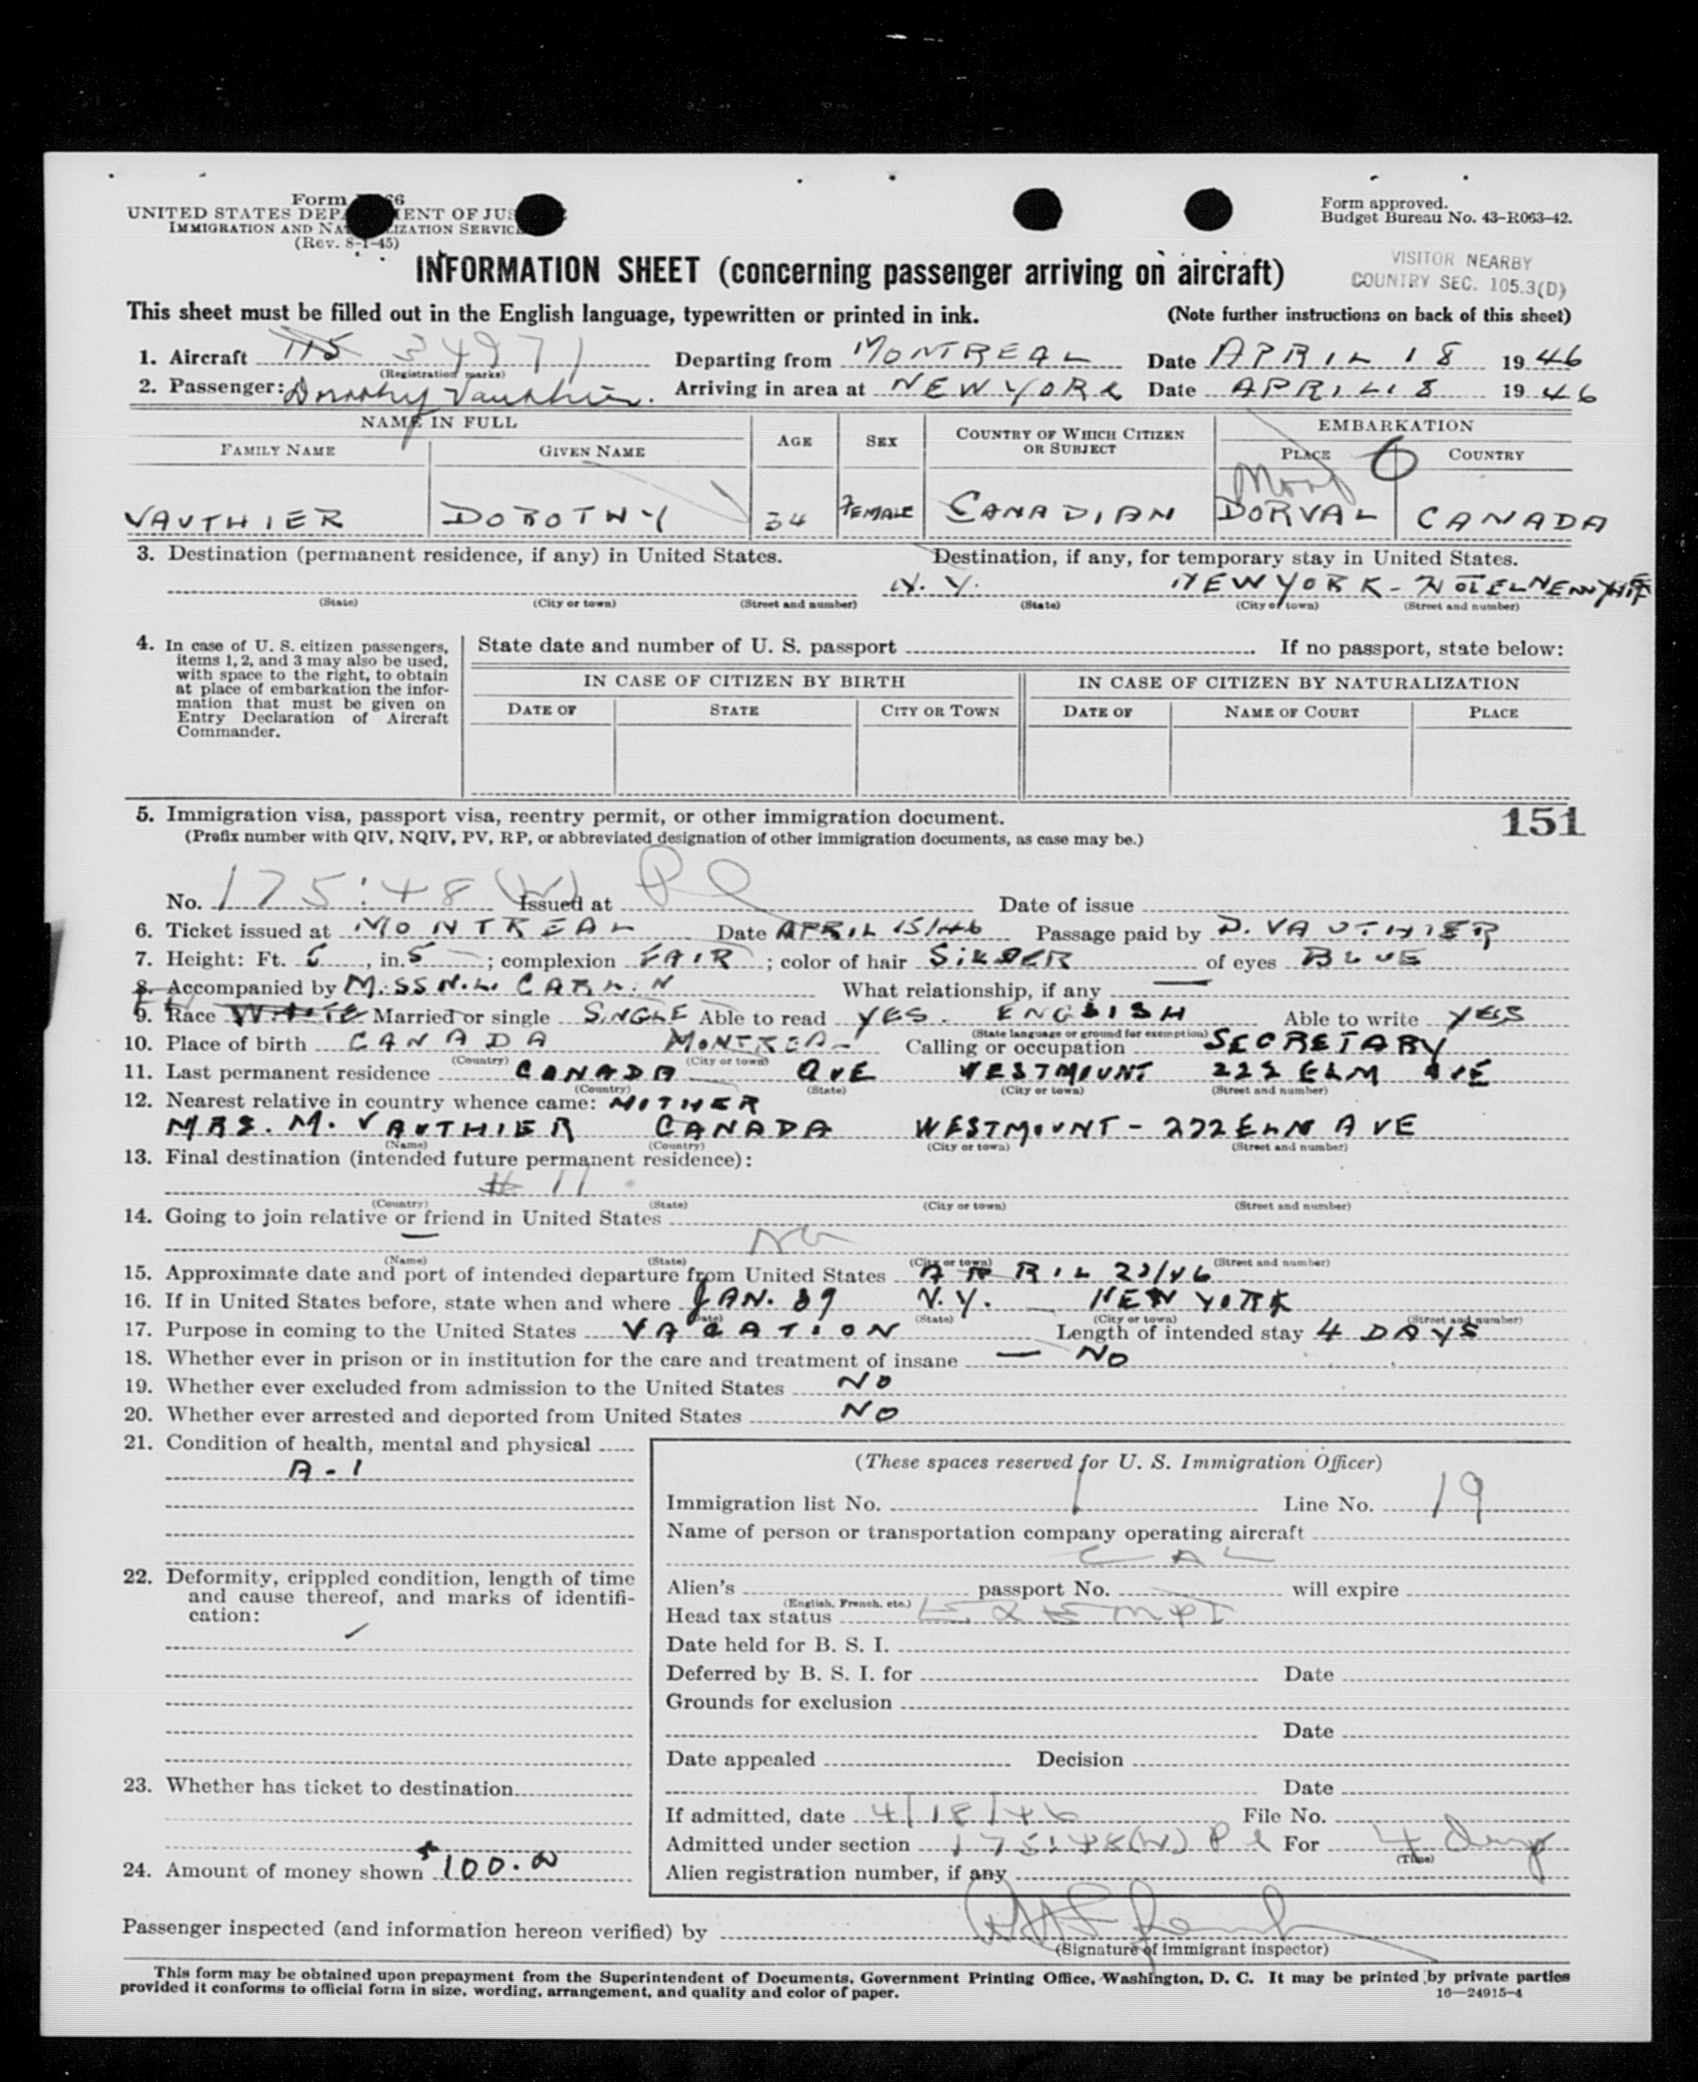 Form
UNITED STATES DEPARTMENT OF JUSTICE
IMMIGRATION AND NATURALIZATION SERVICE
(Rev. 8-1-45)
Form approved.
Budget Bureau No. 43-R063-42.
VISITOR NEARBY
COUNTRY SEC. 105.3(D)
INFORMATION SHEET (concerning passenger arriving on aircraft)
This sheet must be filled out in the English language, typewritten or printed in ink. (Note further instructions on back of this sheet)
1. Aircraft 34971 Departing from MONTREAL Date APRIL 18 1946
(Registration marks)
2. Passenger: Dorothy Vauthier. Arriving in area at NEW YORK Date APRIL 18 1946
NAME IN FULL AGE SEX COUNTRY OF WHICH CITIZEN OR SUBJECT EMBARKATION
FAMILY NAME GIVEN NAME PLACE 6 COUNTRY
VAUTHIER DOROTHY 34 FEMALE CANADIAN DORVAL CANADA
3. Destination (permanent residence, if any) in United States. Destination, if any, for temporary stay in United States.
N.Y. NEW YORK - HOTEL
(State) (City or town) (Street and number) (State) (City or town) (Street and number)
4. In case of U. S. citizen passengers, items 1, 2, and 3 may also be used, with space to the right, to obtain at place of embarkation the information that must be given on Entry Declaration of Aircraft Commander.
State date and number of U. S. passport If no passport, state below:
IN CASE OF CITIZEN BY BIRTH IN CASE OF CITIZEN BY NATURALIZATION
DATE OF STATE CITY OR TOWN DATE OF NAME OF COURT PLACE
5. Immigration visa, passport visa, reentry permit, or other immigration document. 151
(Prefix number with QIV, NQIV, PV, RP, or abbreviated designation of other immigration documents, as case may be.)
No. 175:48 (W) Issued at Pl Date of issue
6. Ticket issued at MONTREAL Date APRIL 15/46 Passage paid by D. VAUTHIER
7. Height: Ft. 5, in. 5; complexion FAIR; color of hair SILVER of eyes BLUE
8. Accompanied by MISS N.L. CARLIN What relationship, if any —
9. Race WHITE Married or single SINGLE Able to read YES. ENGLISH Able to write YES
(State language or ground for exemption)
10. Place of birth CANADA MONTREAL Calling or occupation SECRETARY
(Country) (City or town)
11. Last permanent residence CANADA QUE WESTMOUNT 222 ELM AVE
(Country) (State) (City or town) (Street and number)
12. Nearest relative in country whence came: MOTHER
MRS. M. VAUTHIER CANADA WESTMOUNT - 222 ELM AVE
(Name) (Country) (City or town) (Street and number)
13. Final destination (intended future permanent residence):
# 11
(Country) (State) (City or town) (Street and number)
14. Going to join relative or friend in United States
— No
(Name) (State) (City or town) (Street and number)
15. Approximate date and port of intended departure from United States APRIL 22/46
16. If in United States before, state when and where JAN. 39 N.Y. — NEW YORK
(Date) (State) (City or town) (Street and number)
17. Purpose in coming to the United States VACATION Length of intended stay 4 DAYS
18. Whether ever in prison or in institution for the care and treatment of insane — NO
19. Whether ever excluded from admission to the United States NO
20. Whether ever arrested and deported from United States NO
21. Condition of health, mental and physical
A-1
22. Deformity, crippled condition, length of time and cause thereof, and marks of identification:
23. Whether has ticket to destination
24. Amount of money shown $100.00
(These spaces reserved for U. S. Immigration Officer)
Immigration list No. 1 Line No. 19
Name of person or transportation company operating aircraft
CAL
Alien's passport No. will expire
(English, French, etc.)
Head tax status EXEMPT
Date held for B. S. I.
Deferred by B. S. I. for Date
Grounds for exclusion
Date
Date appealed Decision
Date
If admitted, date 4/18/46 File No.
Admitted under section 175:48(W) Pl For 4 days
(Time)
Alien registration number, if any
Passenger inspected (and information hereon verified) by
(Signature of immigrant inspector)
This form may be obtained upon prepayment from the Superintendent of Documents, Government Printing Office, Washington, D. C. It may be printed by private parties
provided it conforms to official form in size, wording, arrangement, and quality and color of paper. 16—24915-4